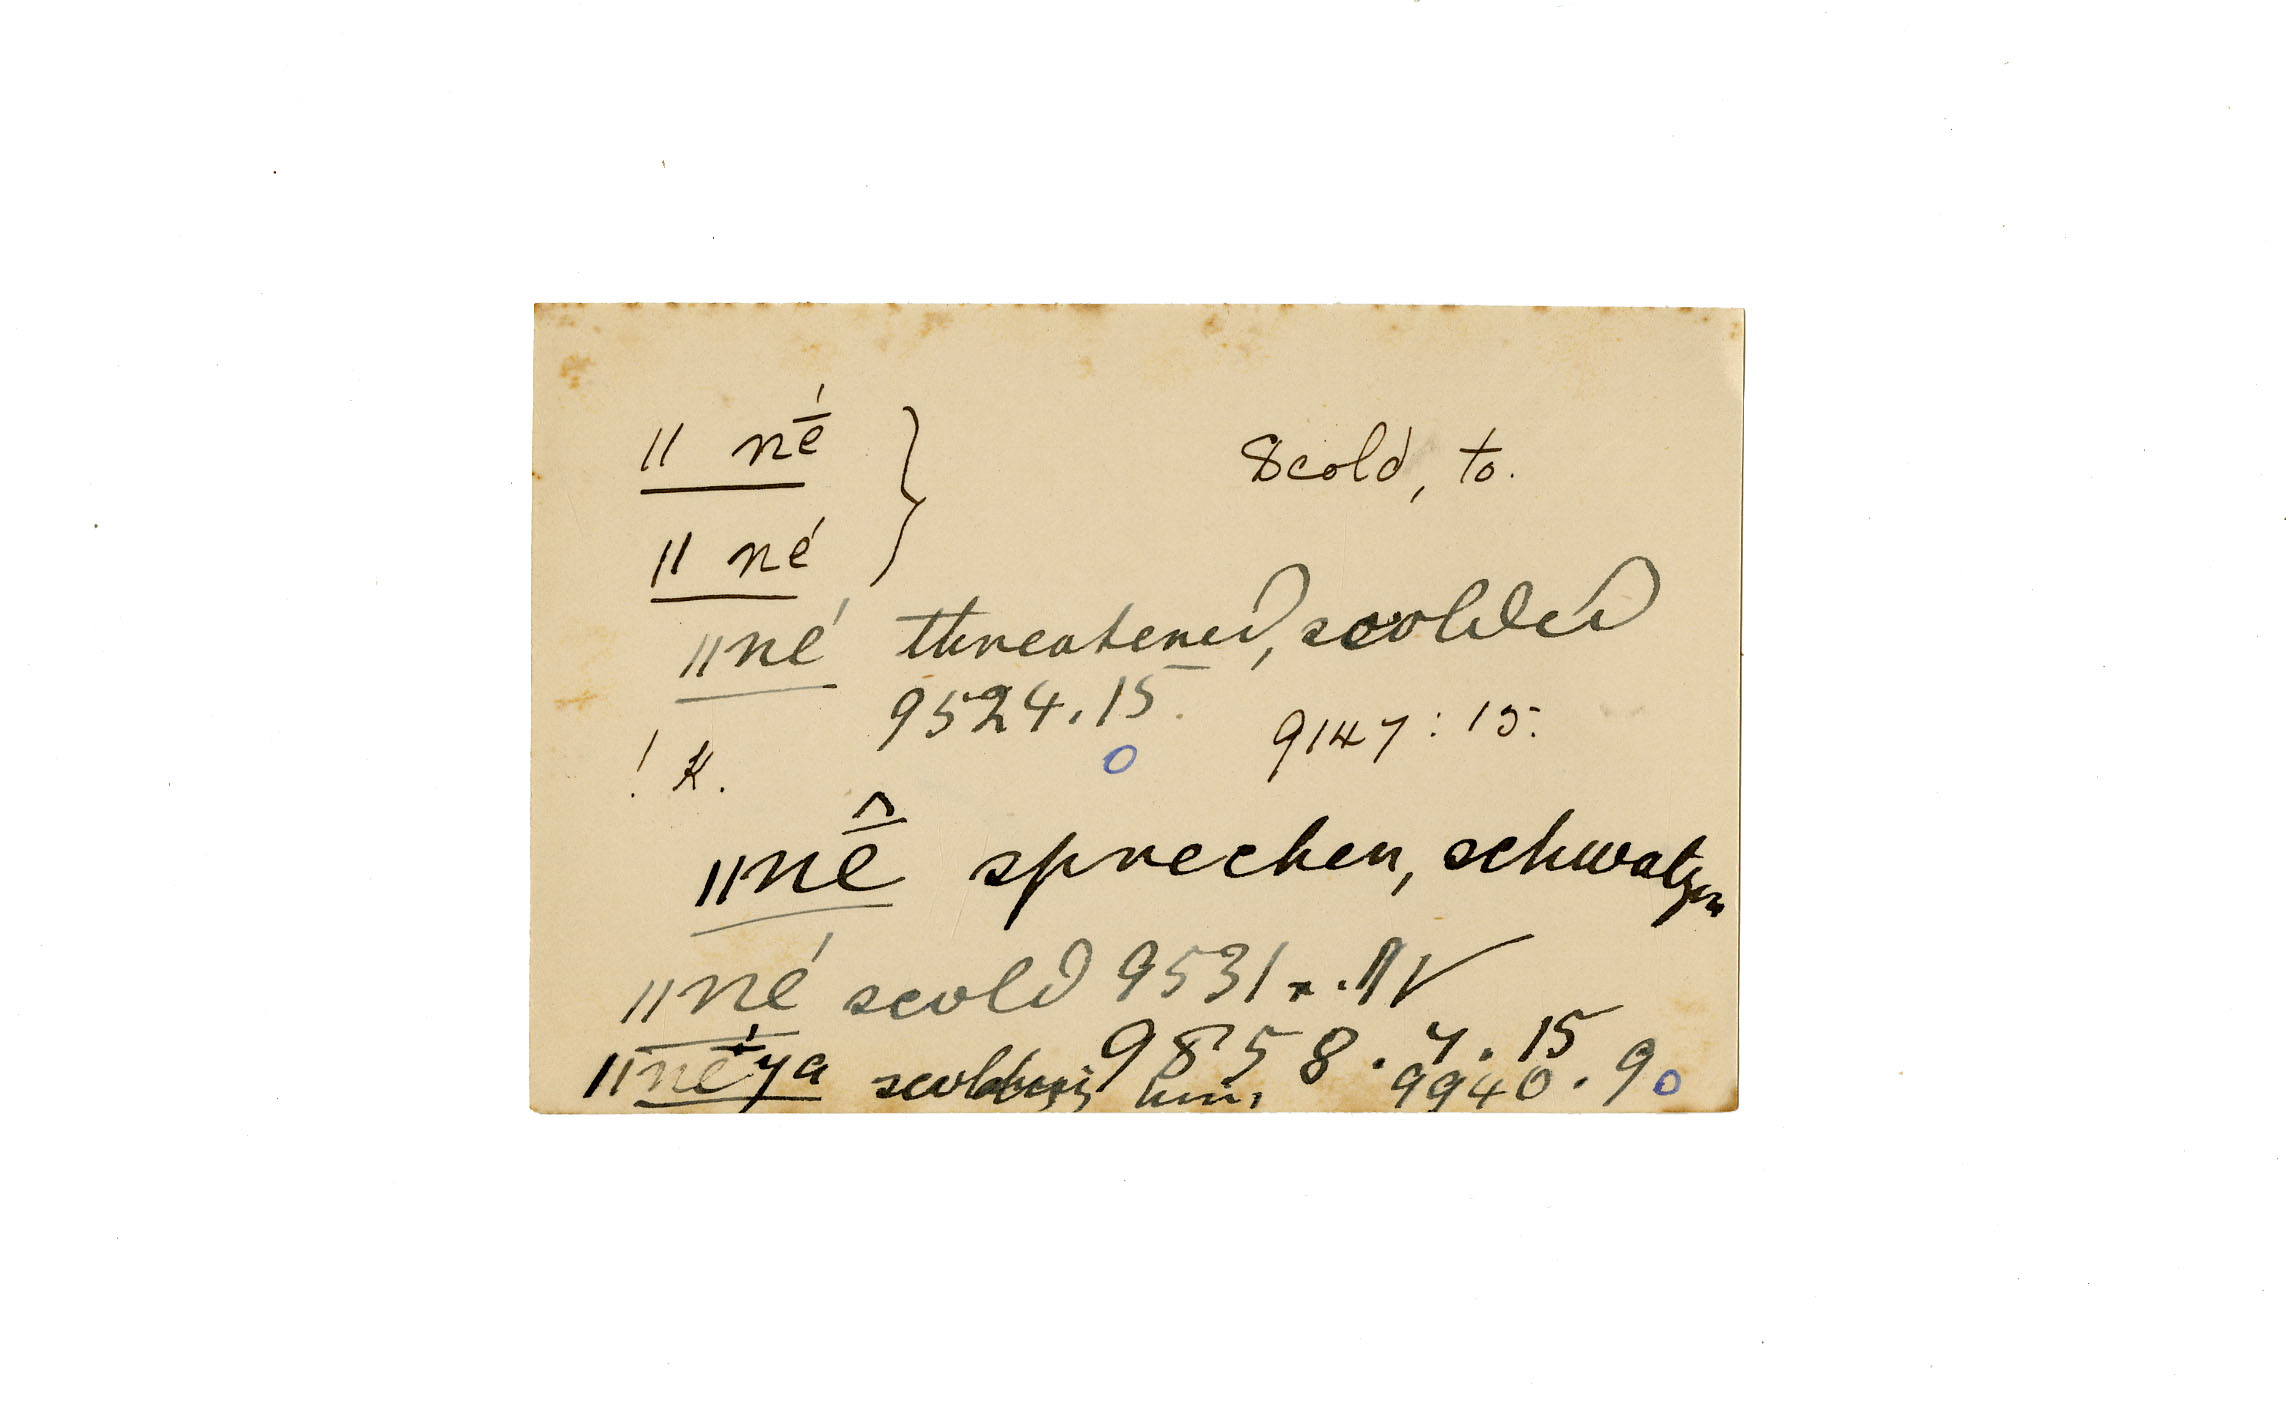 ǁ nḗ } Scold, to.
ǁ né
ǁné threatened, scolded
9524.15. 9147:15.
! K.
ǁnē̂ sprechen, schwatzen
ǁné scold 9531
ǁnḗya scolding him, 9858.7.15
9940.9